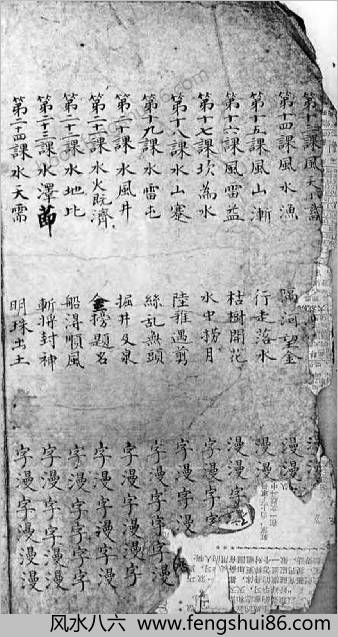 課風天小畜
第十四課風水漁 隔河望金 漫漫
第十五課風山漸 行走落水 漫漫
第十六課風雷益 枯樹開花 漫字
第十七課坎為水 水中撈月 字漫字
第十八課水山寨 陸雅遇剪 字漫字漫
第十九課水雷屯 絲乱無頭 字漫字漫漫
第二十課水風井 掘井及泉 字漫字漫漫
第二十一課水火既濟 金榜題名 字漫字漫漫
第二十二課水地比 船得順風 字漫字漫漫
第二十三課水澤節 斬将封神 字漫字漫漫
第二十四課水天需 明珠出土 字漫字漫漫
风水八六 www.fengshui86.com